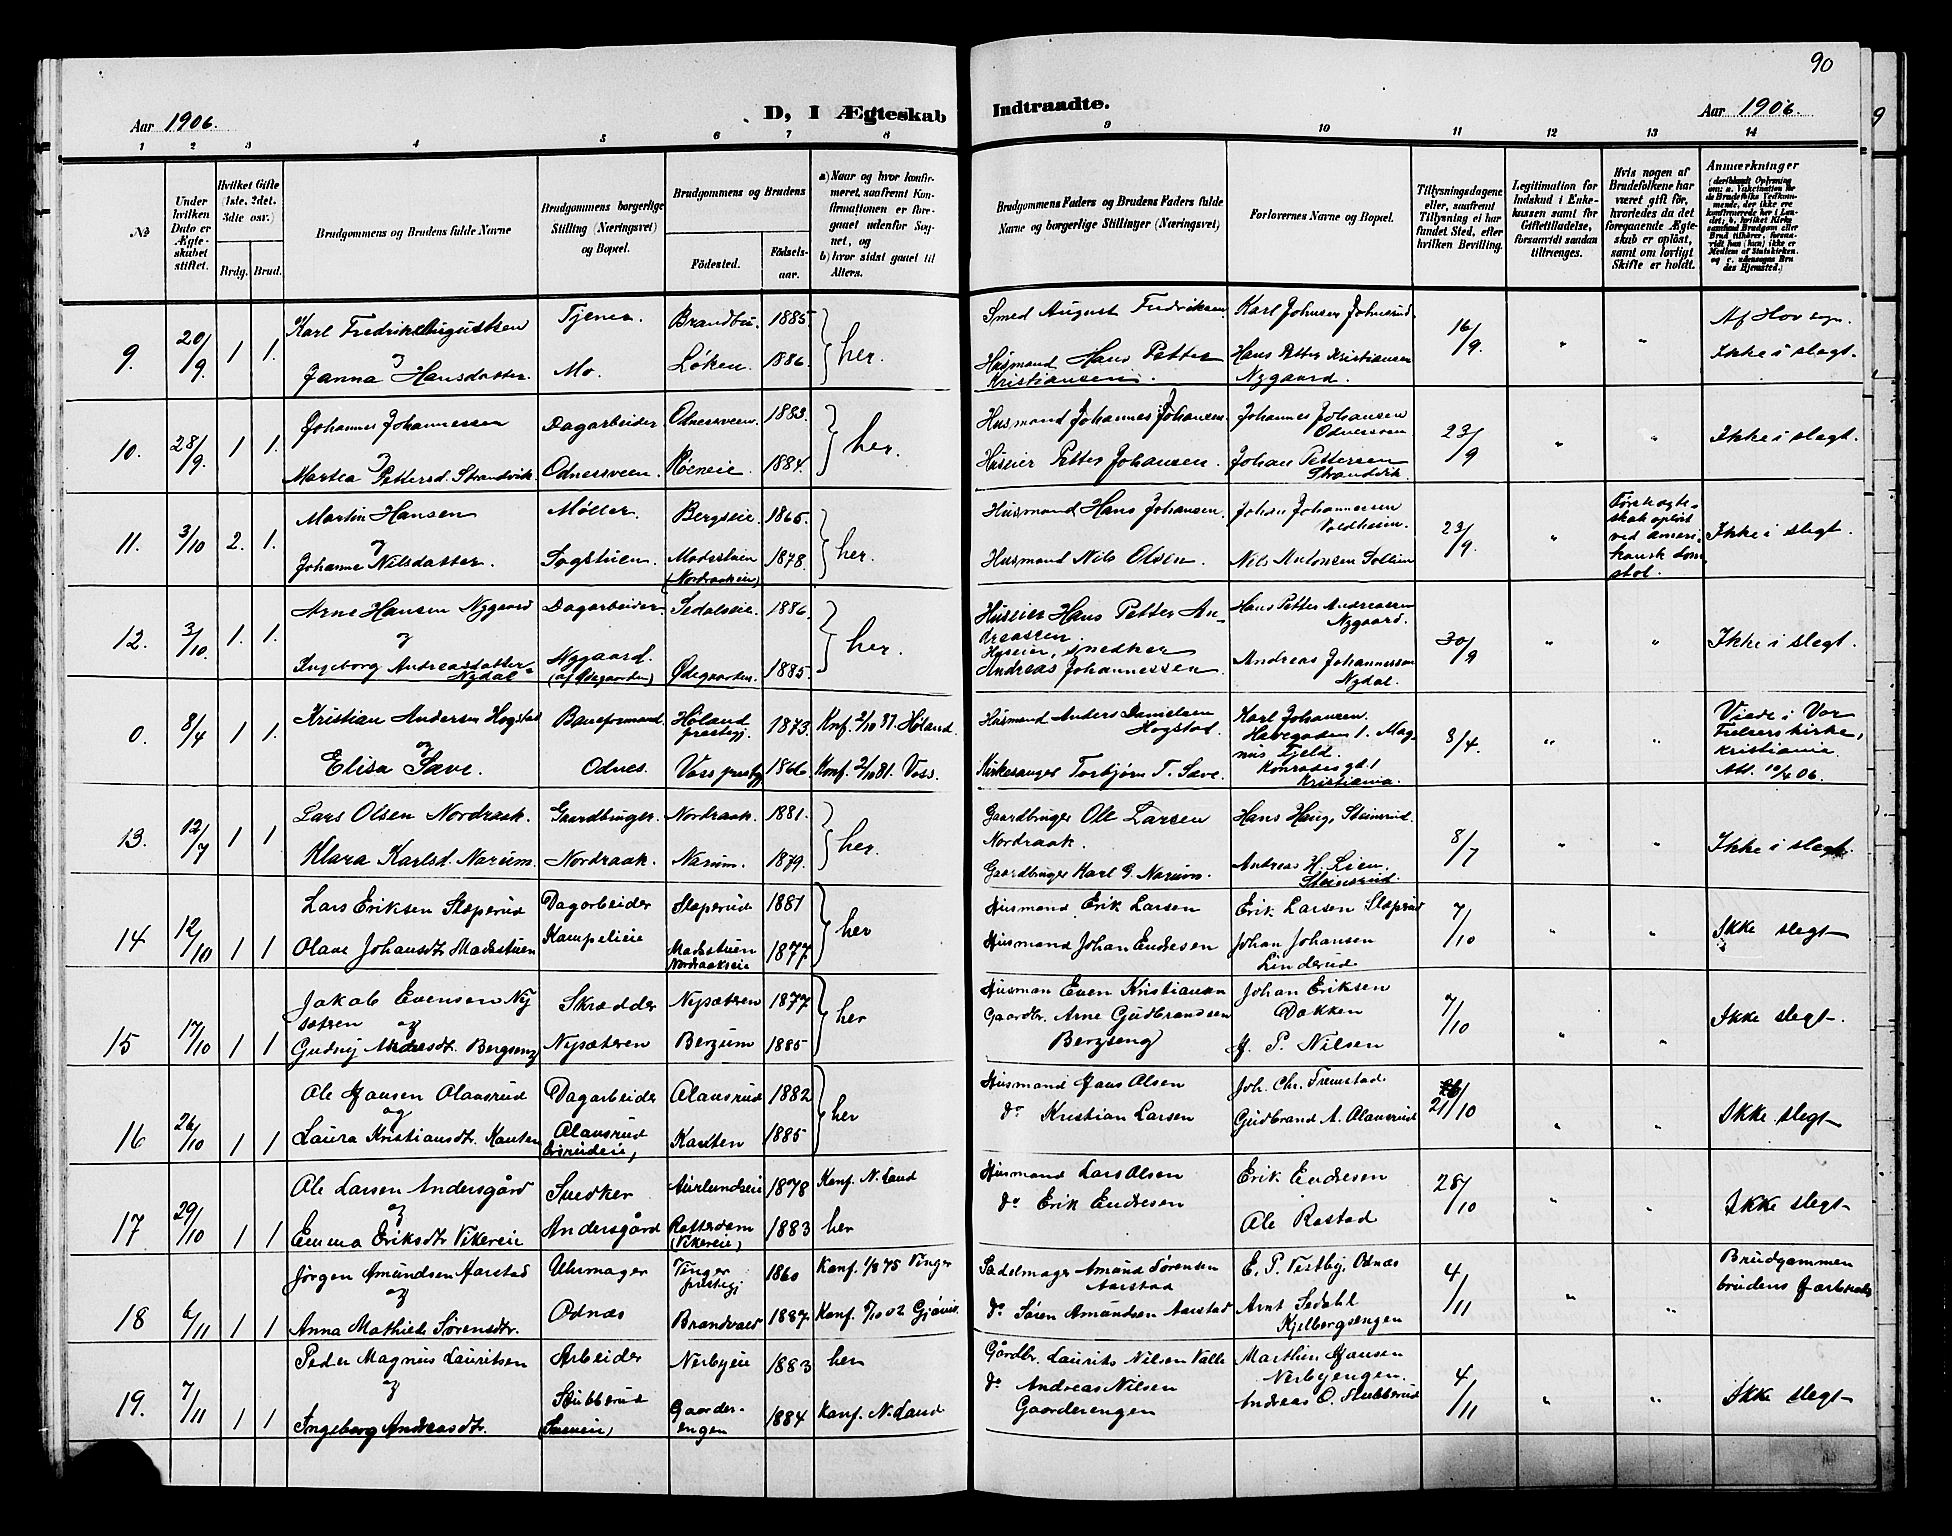 90
Aar 1906.
D, I Ægteskab Indtraadte.
Aar 1906.
1 2 3 4 5 6 7 8 9 10 11 12 13 14
No
Under hvilken Dato er Ægteskabet stiftet.
Hvilket Gifte (1ste, 2det, 3die osv.)
Brdg. Brud.
Brudgommens og Brudens fulde Navne
Brudgommens borgerlige Stilling (Næringsvei) og Bopæl.
Brudgommens og Brudens
Födested. Födselsaar.
a) Naar og hvor konfirmeret, saafremt Konfirmationen er foregaaet udenfor Sognet, og
b) hvor sidst gaaet til Alters.
Brudgommens Faders og Brudens Faders fulde Navne og borgerlige Stillinger (Næringsvei)
Forlovernes Navne og Bopæl.
Tillysningsdagene eller, saafremt Tillysning ei har fundet Sted, efter hvilken Bevilling.
Legitimation for Indskud i Enkekassen samt for Giftetilladelse, forsaavidt saadan tiltrænges.
Hvis nogen af Brudefolkene har været gift för, hvorledes da det foregaaende Ægteskab er oplöst, samt om lovligt Skifte er holdt.
Anmærkninger
9. 20/9 1 1. Karl Fredrik Augustsen Tjener Brandbu. 1885 } her. Smed August Fredriksen Karl Johnsen Johnsrud 16/9. " " Af Hov sogn.
og Janna Hansdatter. Mo. Løken. 1886. Husmand Hans Petter Kristiansen. Hans Petter Kristiansen Nygaard. Ikke i slegt.
10. 28/9. 1 1. Johannes Johannessen Dagarbeider Odnessveen 1883 } her. Husmand Johannes Johansen. Johannes Johansen Odnessveen 23/9 " " Ikke i slegt.
og Martea Pettersd. Strandvik. Odnessveen. 1884. Huseier Petter Johansen. Johan Pettersen Strandvik.
11. 3/10 2. 1. Martin Hansen Møller. Bergseie. 1865. } her. Husmand Hans Johansen. Johan Johannessen 23/9. " Første ægteskab opløst ved amerikansk domstol. Ikke i slegt.
og Johanne Nilsdatter. Sogstuen. Madsstuen (Nordraakseie) 1878. Husmand Nils Olsen. Nils Antonsen
12. 3/10. 1. 1. Arne Hansen Nygaard Dagarbeider Sedalseie. 1886. } her. Huseier Hans Petter Andreassen. Hans Petter Andreassen Nygaard. 30/9 " " Ikke i slegt.
og Ingeborg Andreasdatter Nydal Nygaard. (af Ødegaarden) Ødegaarden. 1885. Huseier, snedker Andreas Johannessen Andreas Johannessen Nydal.
0. 8/4 1 1. Kristian Andersen Hogstad Baneformand. Høland prestegj. 1873. Konf. 2/10 87. Høland. Husmand Anders Danielsen Hogstad. Karl Johansen. Havegaden 1. Magnus Fjeld. 8/4. " " Viede i Vor Frelsers kirke, Kristiania.
og Elisa Sæve. Odnes. Voss prestgj 1866 Konf. 2/10 81. Voss. Kirkesanger Torbjørn T. Sæve. Kristiania. Att. 10/4 06.
13. 12/7 1 1 Lars Olsen Nordraak. Gaardbruger. Nordraak. 1881. } her. Gaardbruger Ole Larsen Nordraak. Hans Haug, Steinsrud. 8/7 " " Ikke i slegt.
Klara Karlsd. Narum. Nordraak. Narum. 1879. Gaardbruger Karl G. Narum. Andreas H. Lien. Steinsrud.
14 12/10 1 1 Lars Eriksen Slaperud Dagarbeider Slaperud 1881 } her Husmand Erik Larsen Erik Larsen Slaprud 7/10 " " Ikke slegt
Olave Johansdtr Madsstuen Kampelieie Madsstuen Nordraakseie 1877 Husmand Johan Endresen Johan Johansen Linderud
15 17/10 1 1 Jakob Evensen Nysætren Skrædder Nysætren 1877 } her Husman Even Kristiansen Johan Eriksen Dokken 7/10 " " Ikke slegt.
og Gudny Andreasdtr. Bergseng Nysæteren Berzum 1885 Gaardbr. Arne Gudbrandsen Bergseng H. P. Nilsen
16 26/10 1 1 Ole Hansen Olausrud Dagarbeider Olausrud 1882 } her Husmand Hans Olsen Joh. Chr. Tremstad 21/10 " " Ikke slegt
og Laura Kristiansdtr. Kanten Olausrud Kanten 1885 do Kristian Larsen Gudbrand A. Olausrud
17 29/10 1 1 Ole Larsen Andersgård Snedker Aurlundseie 1878 Konf. N. Land Husmand Lars Olsen Erik Endresen 28/10 " " Ikke slegt
og Emma Eriksdtr Vikereie Andersgård Rotterdam (Vikereie) 1883 her do Erik Endresen Ole Rostad
18 6/11 1 1 Jörgen Amundsen Aarstad Uhrmager Vinger prestegj 1860 Konf. 1/8 75 Vinger Sadelmager Amund Sörensen Aarstad E. P. Testby, Odnæs 4/11 " " Brudgommen brudens farbroder
og Anna Mathilde Sörensdtr. Odnæs Brandvald 1887 Konf. 5/10 02 Gjövik. do Sören Amundsen Aarstad Arnt Sedahl Kjelbergsengen
19. 7/11 1 1 Peder Magnus Lauritsen Arbeider Nerbyeie 1883 her Gårdbr. Laurits Nilsen Valle Marthin Hansen Nerbyengen. 4/11 " " Ikke slegt
og Ingeborg Andreasdtr. Stubberud Gaarderengen 1884 Konf. N. Land do Andreas Nilsen Gaarderengen Andreas O. Stubberud